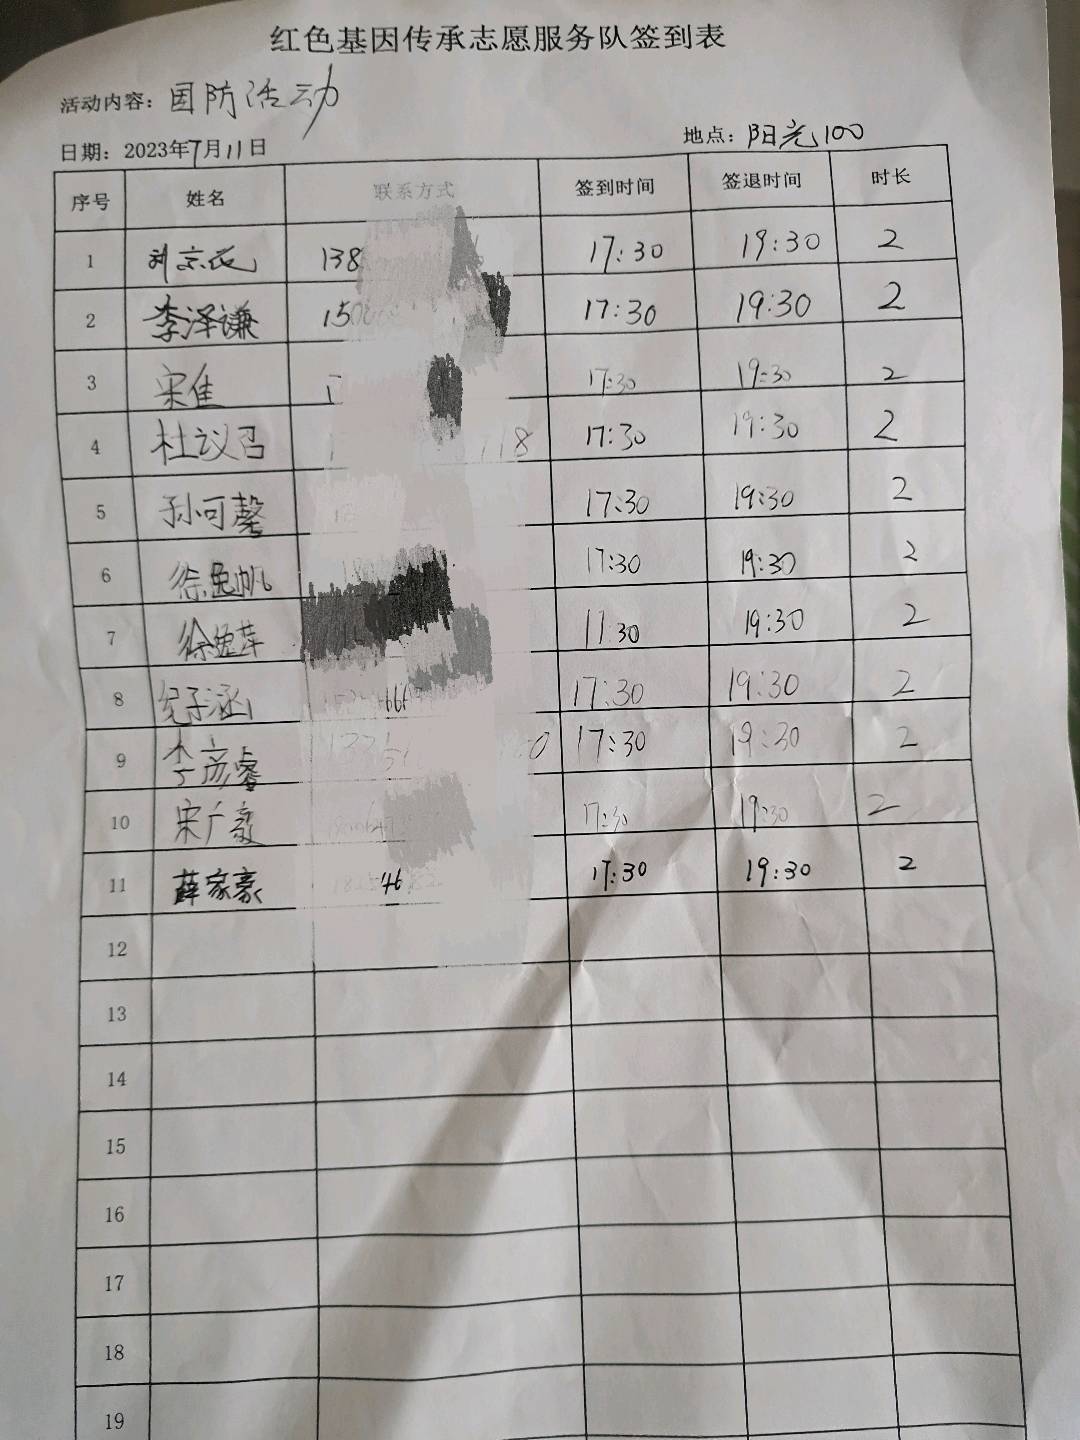 红色基因传承志愿服务队签到表
活动内容：国防活动
日期：2023年7月11日 地点：阳光100
序号 姓名 联系方式 签到时间 签退时间 时长
1 138 17:30 19:30 2
2 李泽谦 150 17:30 19:30 2
3 宋佳 1 17:30 19:30 2
4 杜议召 1 118 17:30 19:30 2
5 孙可馨 17:30 19:30 2
6 17:30 19:30 2
7 17:30 19:30 2
8 纪子涵 17:30 19:30 2
9 李彦睿 17:30 19:30 2
10 宋广毅 17:30 19:30 2
11 薛家豪 46 17:30 19:30 2
12
13
14
15
16
17
18
19